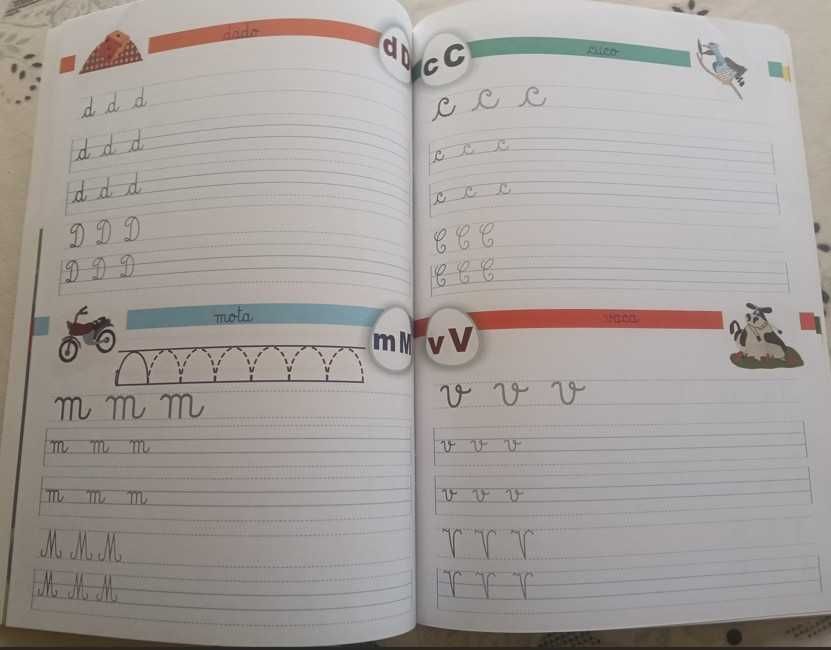 dado
d D
d d d
d d d
d d d
D D D
D D D
mota
m M
m m m
m m m
m m m
M M M
M M M
c C
cuco
c c c
c c c
c c c
C C C
C C C
v V
vaca
v v v
v v v
v v v
V V V
V V V